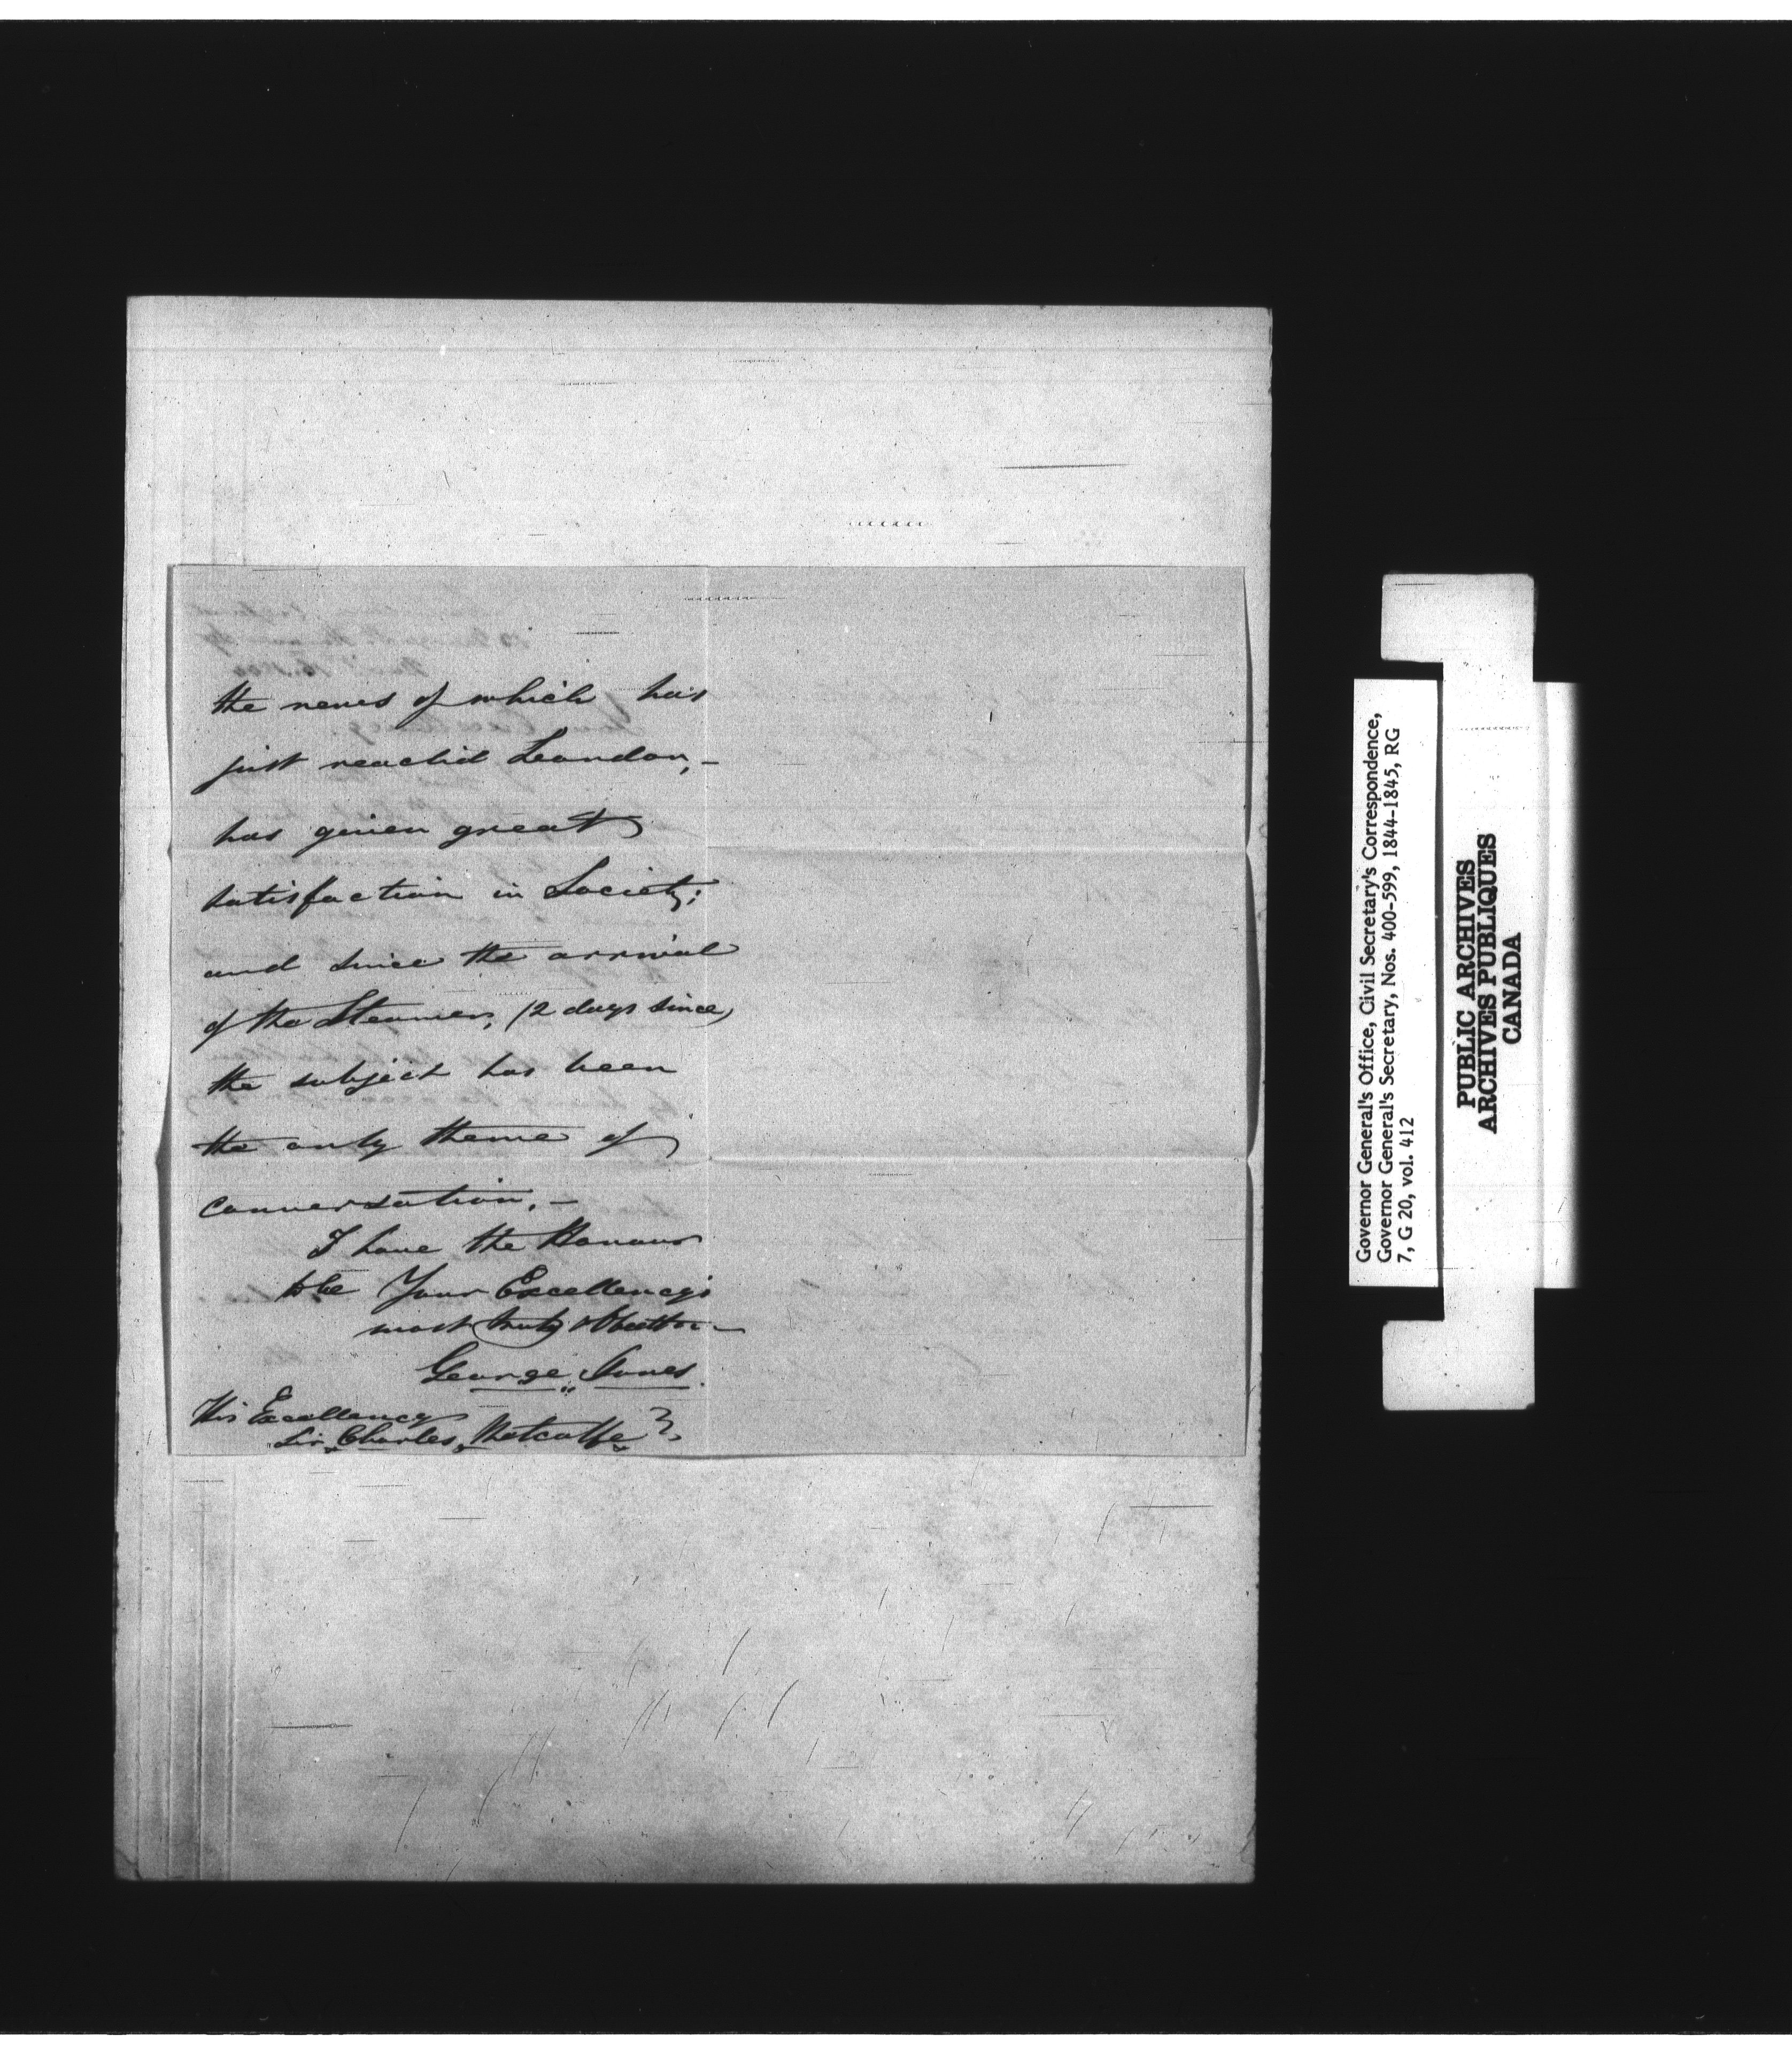 the news of which has
just reached London, –
has given great
satisfaction in Society;
and since the arrival
of the Steamer, (2 days since)
the subject has been
the only theme of
conversation. –
I have the Honour
to be Your Excellency's
most truly
George Jones.
His Excellency
Sir Charles Metcalfe
Governor General's Office, Civil Secretary's Correspondence,
Governor General's Secretary, Nos. 400-599, 1844-1845, RG
7, G 20, vol. 412
PUBLIC ARCHIVES
ARCHIVES PUBLIQUES
CANADA